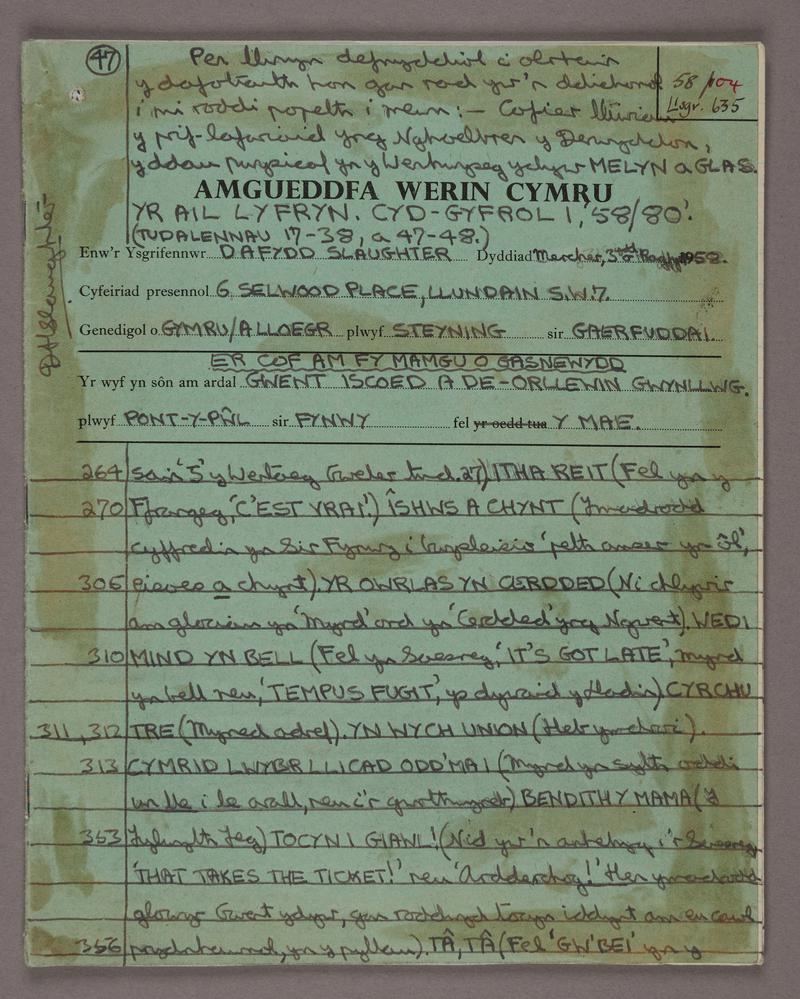 47
Pen llinyn defnyddiol i olrhain
y dafodiaith hon gan mai yw'n
i mi roddi popeth i mewn:— Cofier
58/104
Llsgr. 635
y prif-lafariaid yng Nghoelbren y Derwyddon,
yddau yn y ydyw MELYN a GLAS.
AMGUEDDFA WERIN CYMRU
YR AIL LYFRYN. CYD-GYFROL 1, '58/80'.
(TUDALENNAU 17-38, a 47-48.)
Enw'r Ysgrifennwr DAFYDD SLAUGHTER Dyddiad Mercher, 3ydd Rhagfyr 1958.
Cyfeiriad presennol 6 SELWOOD PLACE, LLUNDAIN S.W.7.
Genedigol o GYMRU/A LLOEGR plwyf STEYNING sir GAERFUDDAI.
ER COF AM FY MAMGU O GASNEWYDD
Yr wyf yn sôn am ardal GWENT ISCOED A DE-ORLLEWIN GWYNLLWG.
plwyf PONT-Y-PŴL sir FYNWY fel yr oedd tua Y MAE.
264 sain 'S' y Wenhwyseg Gweler tud. 27) ITHA REIT (Fel yn y
270 Ffrangeg, 'C'EST VRAI'.) ÎSHWS A CHYNT (Ymadrodd
cyffredin yn Sir Fynwy i 'peth amser yn ôl',
306 eisoes a chynt). YR OWRLAS YN CERDDED (Ni chlywir
am glociau yn 'Mynd' ond yn 'Cerdded' yng Ngwent). WEDI
310 MIND YN BELL (Fel yn Saesneg, 'IT'S GOT LATE', mynd
yn bell neu, 'TEMPUS FUGIT', ys dywaid y Lladin) CYRCHU
311, 312 TRE (Myned adref). YN WYCH UNION (Heb ymdroi).
313 CYMRID LWYBR LLICAD ODD'MA I (Mynd yn syth oddi
un lle i le arall, neu i'r gwrthwyneb) BENDITH Y MAMA (Y
353 Tylwyth Teg) TOCYN I GIAWL! (Nid yw'n annhebyg i'r Saesneg
'THAT TAKES THE TICKET!' neu 'Ardderchog!' Hen ymadrodd
glowyr Gwent ydyw, gan roddwyd tocyn iddynt am eu cawl
356 prydnhawnol, yn y pyllau). TÂ, TÂ (Fel 'GW'BEI' yn y
D.H. Slaughter